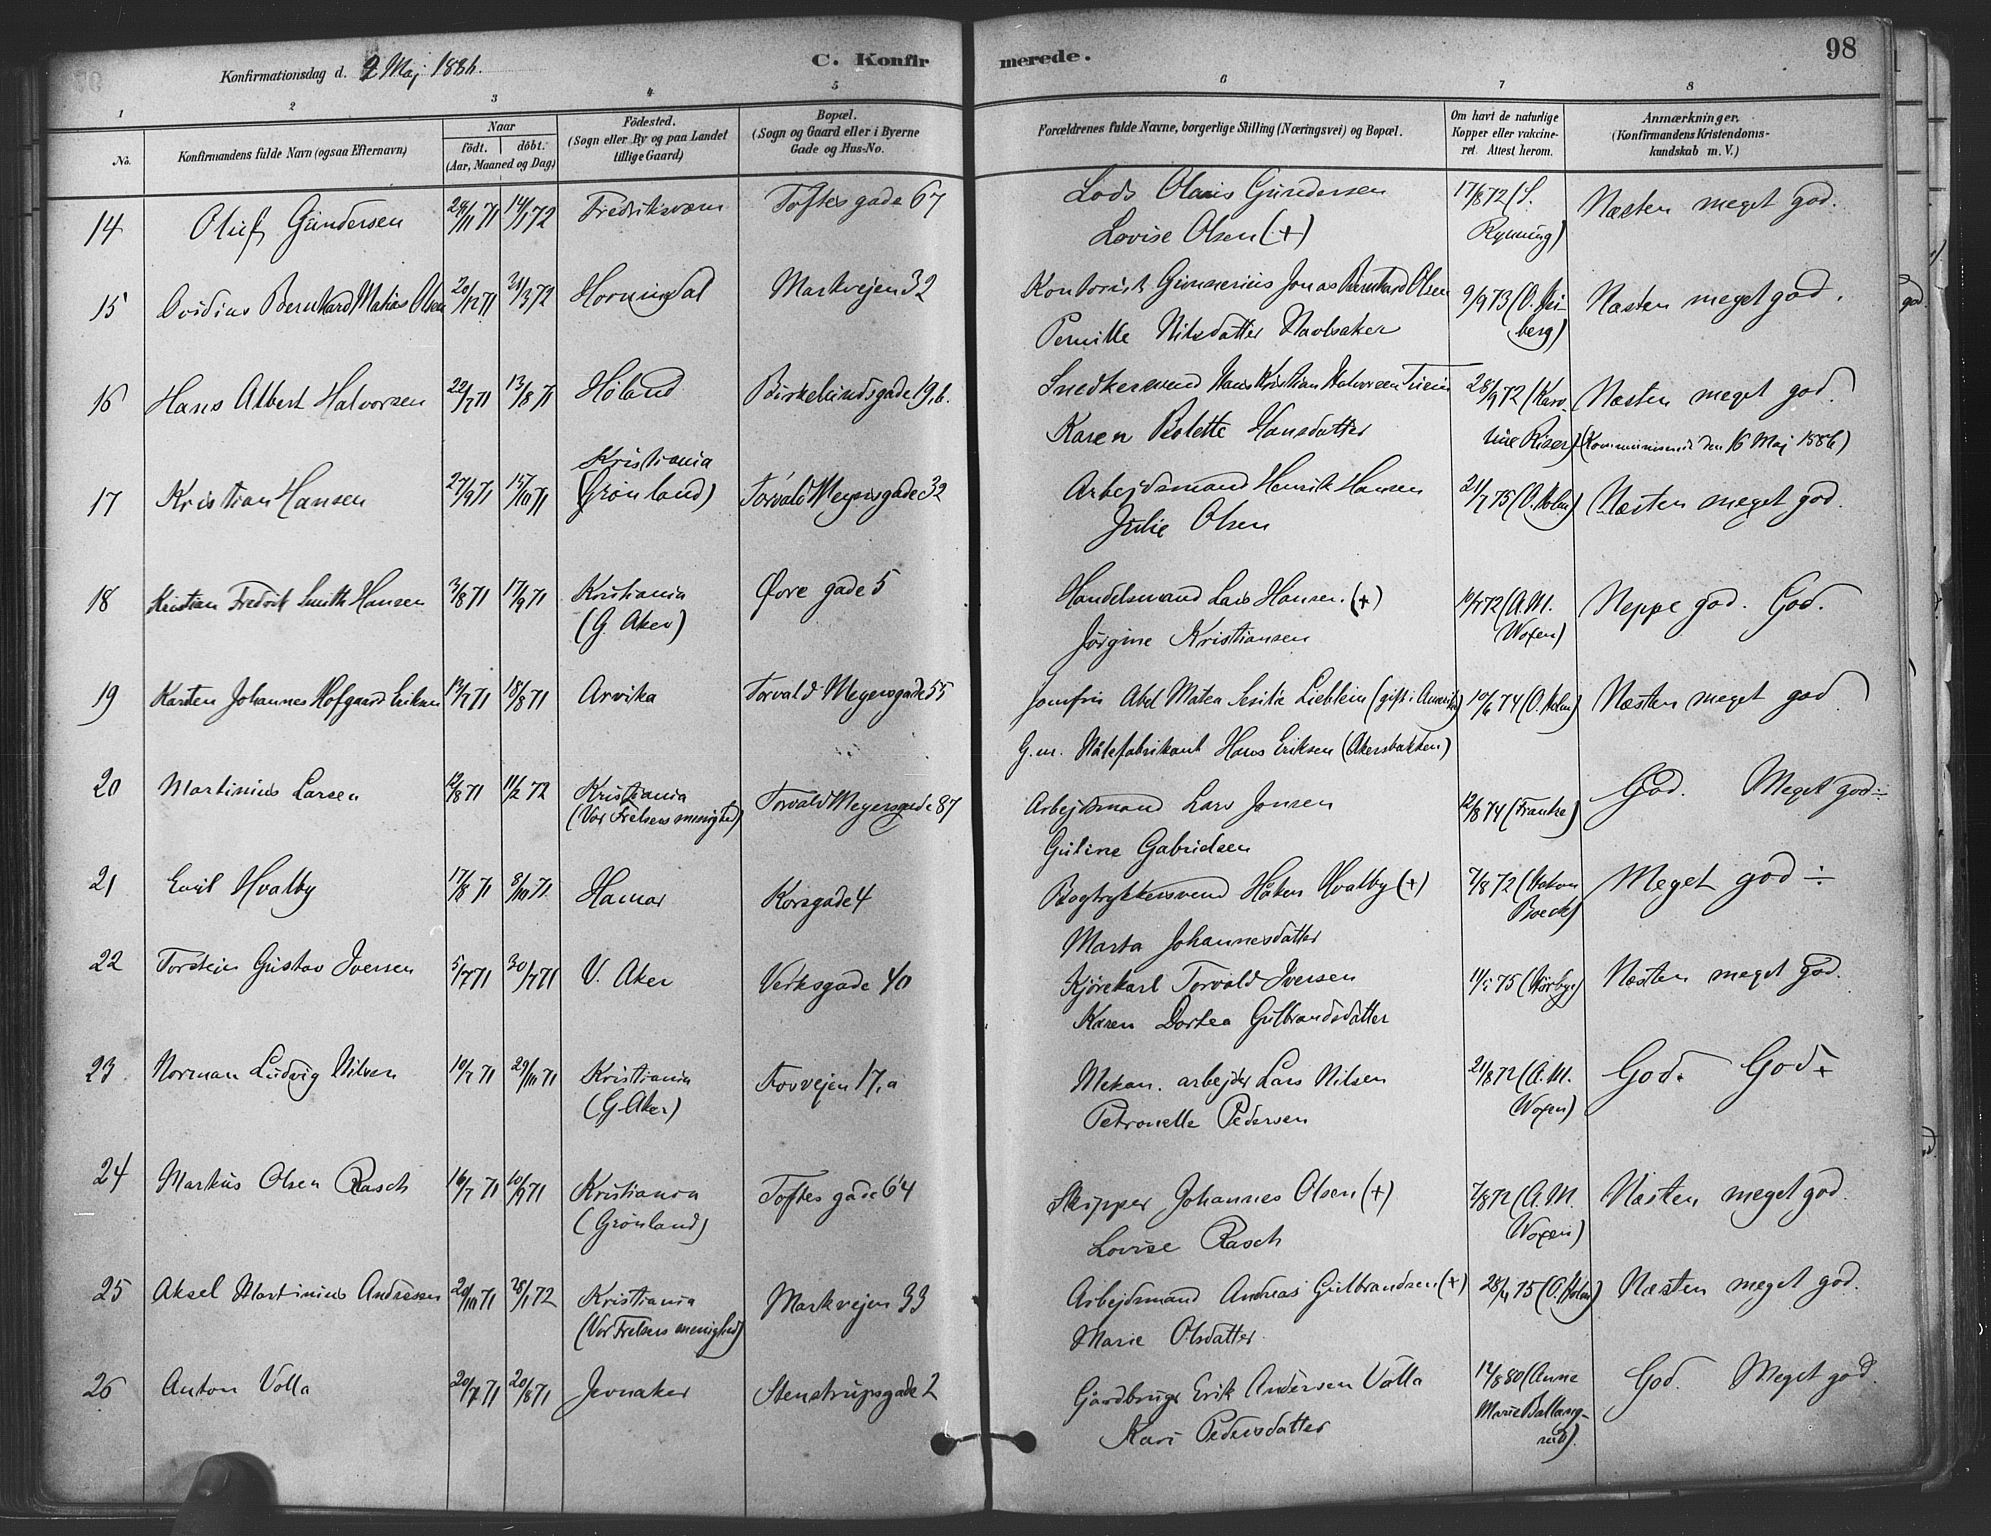 Konfirmationsdag d. 9 Maj 1886.
C. Konfir
merede.
98
1 2 3 4 5 6 7 8
No.
Konfirmandens fulde Navn (ogsaa Efternavn)
Naar
födt. döbt.
(Aar, Maaned og Dag)
Födested.
(Sogn eller By og paa Landet
tillige Gaard)
Bopæl.
(Sogn og Gaard eller i Byerne
Gade og Hus-No.
Forældrenes fulde Navne, borgerlige Stilling (Næringsvei) og Bopæl.
Om havt de naturlige
Kopper eller vakcine-
ret. Attest herom.
Anmærkninger.
(Konfirmandens Kristendoms-
kundskab m. V.)
14 Oluf Gundersen 29/11 71 14/1 72 Fredriksværn Toftes gade 67 Lods Olaus Gundersen 17/8 72 (S. Næsten meget god.
Lovise Olsen (+) Rynning)
15 Ovidius Bernhard Matias Olsen 20/12 71 31/3 72 Hornindal Markvejen 32 Kontorist Gunnerius Jonas Bernhard Olsen 9/9 73 (O. Hei- Næsten meget god.
Pernille Nilsdatter Navlsaker berg)
16 Hans Albert Halvorsen 22/7 71 13/8 71 Høland Birkelundsgade 19, b. Snedkersvend Hans Kristian Halvorsen 28/9 72 (Karo- Næsten meget god.
Karen Bolette Hansdatter line Riser) (Kommunicerede den 16 Maj 1886)
17 Kristian Hansen 27/9 71 15/10 71 Kristiania
(Grønland) Torvald Meyersgade 32 Arbejdsmand Henrik Hansen 21/7 75 (O. Holm) Næsten meget god.
Julie Olsen
18 Kristian Fredrik Smith Hansen 3/8 71 17/9 71 Kristiania Øvre gade 5 Handelsmand Lars Hansen (+) 10/7 72 (A.M. Neppe god. God.
(G. Aker) Jørgine Kristiansen Woxen)
19 Karsten Johannes Hofgaard Eriksen 13/7 71 18/8 71 Arvika Torvald Meyersgade 55 Jomfru Abel Matea Lieblein (gift i Amerika) 10/6 74 (O. Holm) Næsten meget god.
G.m. Nålefabrikant Hans Eriksen (Akersbakken)
20 Martinius Larsen 12/8 71 11/2 72 Kristiania Torvald Meyersgade 87 Arbejdsmand Lars Jansen 12/8 74 (Frantze) God. Meget god ÷
(Vor Frelsers menighed) Guline Gabrielsen
21 Emil Hvalby 17/8 71 8/10 71 Hamar Korsgade 4 Bogtrykkersvend Håken Hvalby (+) 7/8 72 (Hakon Meget god ÷
Marta Johannesdatter Boeck)
22 Torstein Gustav Iversen 5/7 71 30/7 71 V. Aker Verksgade 40 Kjørekarl Torvald Iversen 75 (Hörbye) Næsten meget god.
Karen Dortea Gulbrandsdatter
23 Norman Ludvig Nilsen 10/7 71 29/10 71 Kristiania Fossvejen 17, a Mekan. arbejder Lars Nilsen 21/8 72 (A.M. God. God +
(G. Aker) Petronelle Pedersen Woxen)
24 Markus Olsen Rasch 16/7 71 10/9 71 Kristiania Toftes gade 64 Skipper Johannes Olsen (+) 7/8 72 (A.M. Næsten meget god.
(Grønland) Lovise Rasch Woxen)
25 Aksel Martinius Andresen 20/10 71 28/1 72 Kristiania Markvejen 33 Arbejdsmand Andreas Gulbrandsen (+) 28/4 75 (O. Holm) Næsten meget god.
(Vor Frelsers menighed) Marie Olsdatter.
26 Anton Volla 20/7 71 20/8 71 Jevnaker Stenstrupsgade 2 Gårdbruger Erik Andersen Volla 14/8 80 (Anne God. Meget god.
Kari Pedersdatter Marie Ballang-
rud).